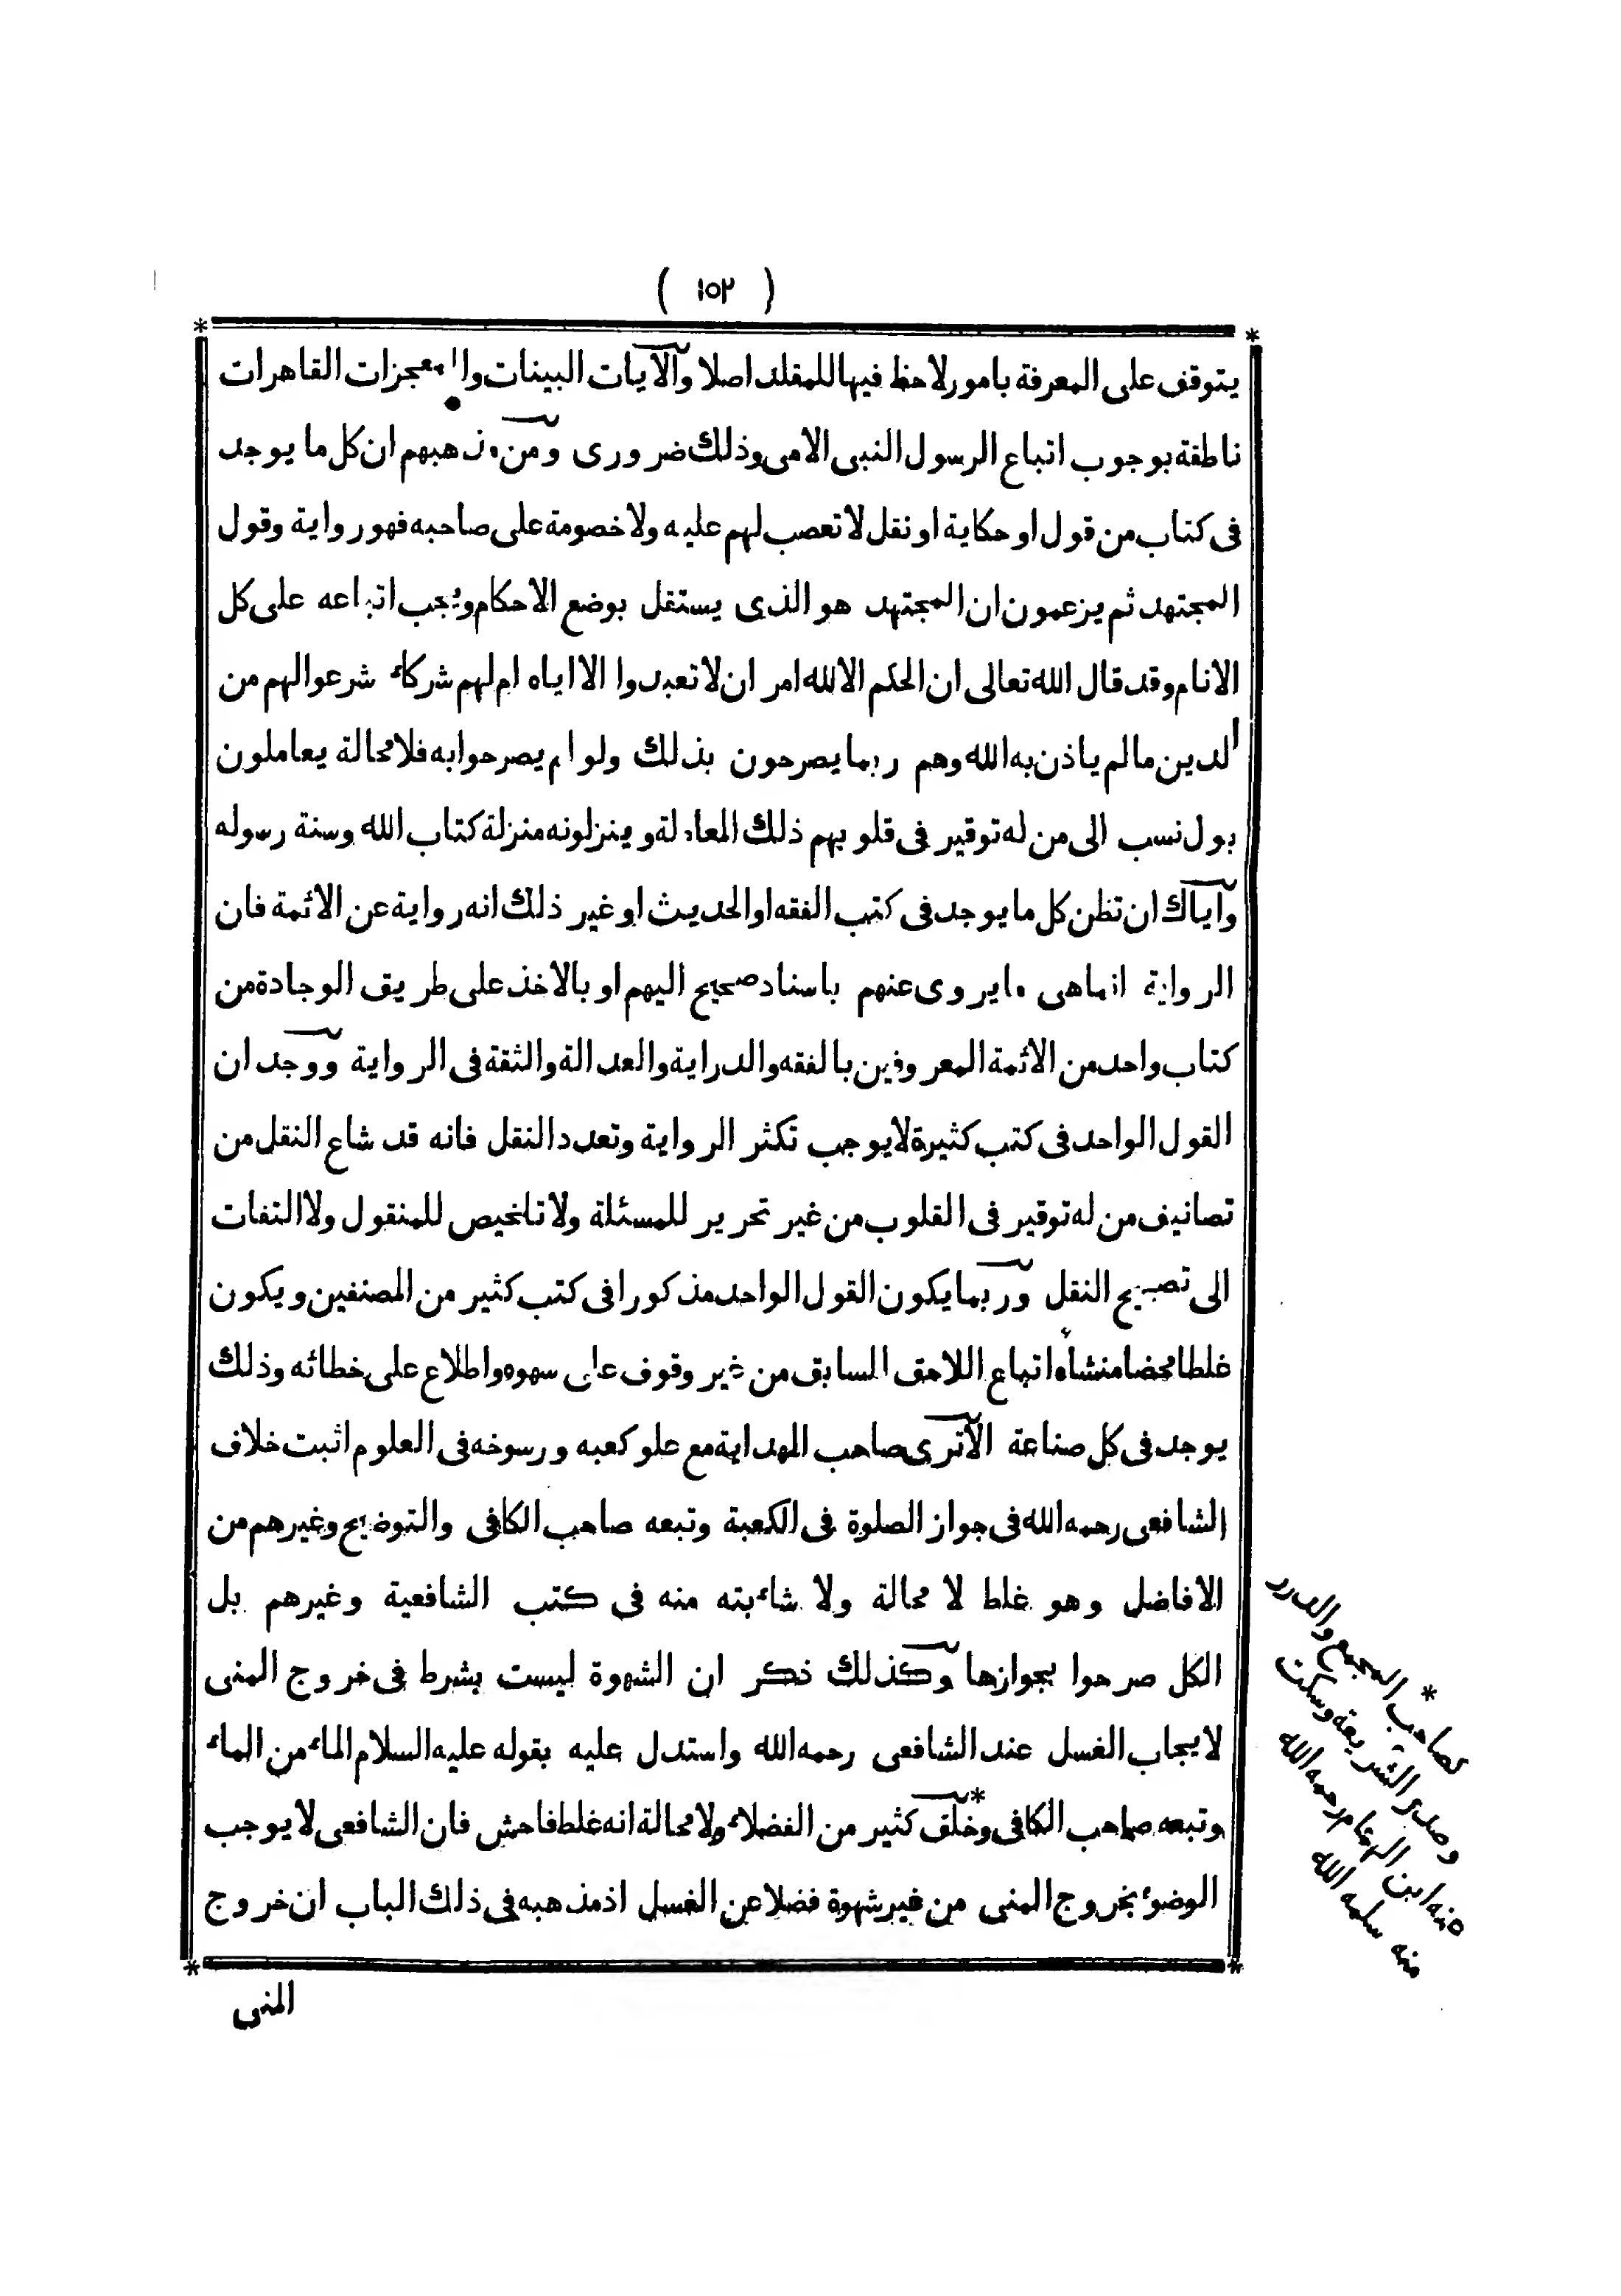 ( ١٥٢ )
يتوقف على المعرفة بامور لاحظ فيها للمقلد اصلا والآيات البينات والمعجزات القاهرات
ناطقة بوجوب اتباع الرسول النبى الامى وذلك ضرورى ومن مذهبهم ان كل ما يوجد
فى كتاب من قول او حكاية او نقل لا تعصب لهم عليه ولا خصومة على صاحبه فهو رواية وقول
المجتهد ثم يزعمون ان المجتهد هو الذى يستقل بوضع الاحكام ويجب اتباعه على كل
الانام وقد قال الله تعالى ان الحكم الا لله امر ان لا تعبدوا الا اياه ام لهم شركاء شرعوا لهم من
الدين ما لم ياذن به الله وهم ربما يصرحون بذلك ولو لم يصرحوا به فلا محالة يعاملون
بول نسب الى من له توقير فى قلوبهم ذلك المعاملة وينزلونه منزلة كتاب الله وسنة رسوله
واياك ان تظن كل ما يوجد فى كتب الفقه او الحديث او غير ذلك انه رواية عن الائمة فان
الرواية انما هى ما يروى عنهم باسناد صحيح اليهم او بالاخذ على طريق الوجادة من
كتاب واحد من الائمة المعروفين بالفقه والدراية والعدالة والثقة فى الرواية ووجد ان
القول الواحد فى كتب كثيرة لا يوجب تكثر الرواية وتعدد النقل فانه قد شاع النقل من
تصانيف من له توقير فى القلوب من غير تحرير للمسئلة ولا تلخيص للمنقول ولا التفات
الى تصحيح النقل وربما يكون القول الواحد مذكورا فى كتب كثير من المصنفين ويكون
غلطا محضا منشأه اتباع اللاحق السابق من غير وقوف على سهوه واطلاع على خطائه وذلك
يوجد فى كل صناعة الآترى صاحب الهداية مع علو كعبه ورسوخه فى العلوم اثبت خلاف
الشافعى رحمه الله فى جواز الصلوة فى الكعبة وتبعه صاحب الكافى والتوضيح وغيرهم من
الافاضل وهو غلط لا محالة ولا شاءبته منه فى كتب الشافعية وغيرهم بل
الكل صرحوا بجوازها وكذلك ذكر ان الشهوة ليست بشرط فى خروج المنى
لايجاب الغسل عند الشافعى رحمه الله واستدل عليه بقوله عليه السلام الماء من الماء
وتبعه صاحب الكافى وخلق* كثير من الفضلاء ولا محالة انه غلط فاحش فان الشافعى لا يوجب
الوضوء بخروج المنى من غير شهوة فضلا عن الغسل اذ مذهبه فى ذلك الباب ان خروج
المنى
* كصاحب المجمع والدرر
وصدر الشريعة وسكت
عنه ابن الهمام رحمه الله
منه سلمه الله